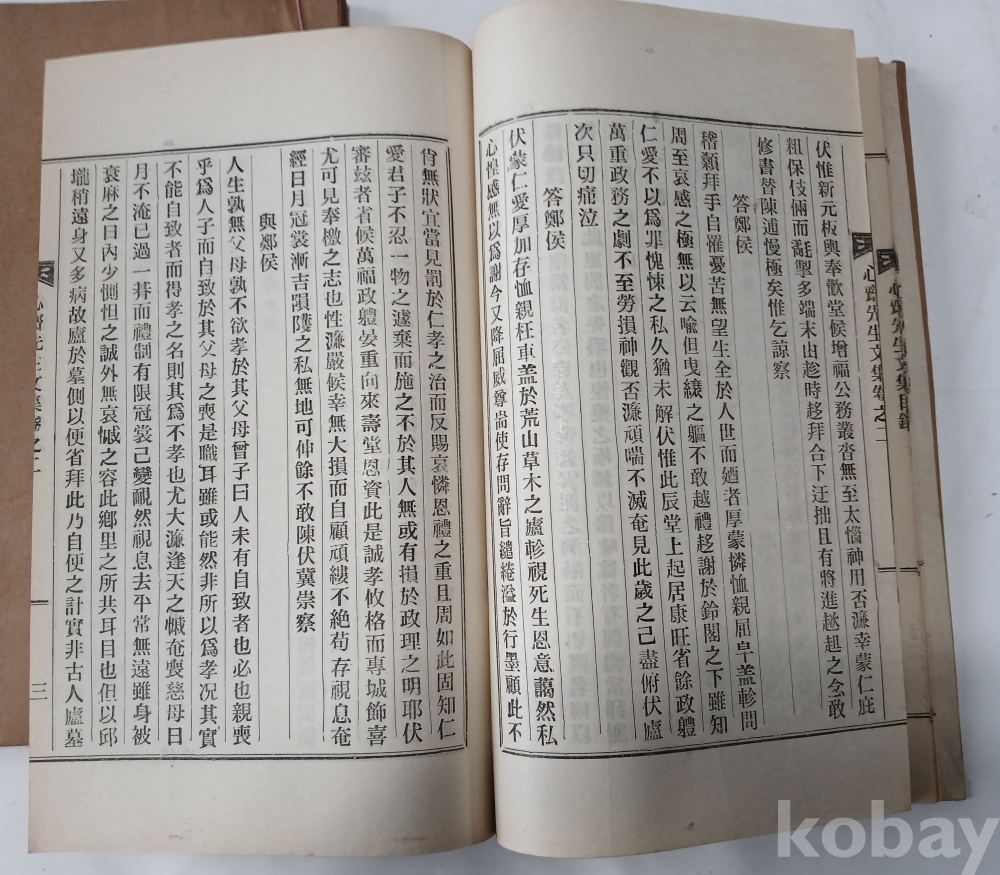 伏惟新元板輿奉歡堂候增福公務叢沓無至太惱神用否濂幸蒙仁庇
粗保伎倆而氄掣多端末由趁時趍拜合下迂拙且有將進趑趄之令敢
修書替陳逋慢極矣惟乞諒察
答鄭侯
稽顙拜手自罹憂苦無望生全於人世而廼者厚蒙憐恤親屈皁盖軫問
周至哀感之極無以云喩但曳縗之軀不敢越禮趍謝於鈴閣之下雖知
仁愛不以爲罪愧悚之私久猶未解伏惟此辰堂上起居康旺省餘政軆
萬重政務之劇不至勞損神觀否濂頑喘不滅奄見此歲之已盡俯伏廬
次只切痛泣
答鄭侯
伏蒙仁愛厚加存恤親枉車盖於荒山草木之廬軫視死生恩意藹然私
心惶感無以爲謝今又降屈威尊耑使存問辭旨繾綣溢於行墨顧此不
肖無狀宜當見罰於仁孝之治而反賜哀憐恩禮之重且周如此固知仁
愛君子不忍一物之遽棄而施之不於其人無或有損於政理之明耶伏
審玆者省候萬福政軆晏重向來壽堂恩資此是誠孝攸格而專城飾喜
尤可見奉檄之志也性濂嚴候幸無大損而自顧頑縷不絶苟存視息奄
經日月冠裳漸吉隕隻之私無地可伸餘不敢陳伏冀崇察
與鄭侯
人生孰無父母孰不欲孝於其父母曾子曰人未有自致者也必也親喪
乎爲人子而自致於其父母之喪是職耳雖或能然非所以爲孝况其實
不能自致者而得孝之名則其爲不孝也尤大濂逢天之慽奄喪慈母日
月不淹已過一朞而禮制有限冠裳已變視然視息去平常無遠雖身被
衰麻之日內少惻怛之誠外無哀慽之容此鄕里之所共耳目也但以邱
壠稍遠身又多病故廬於墓側以便省拜此乃自便之計實非古人廬墓
心齋先生文集卷之二
三
心齋先生文集卷之二
心齋先生文集目錄
kobay